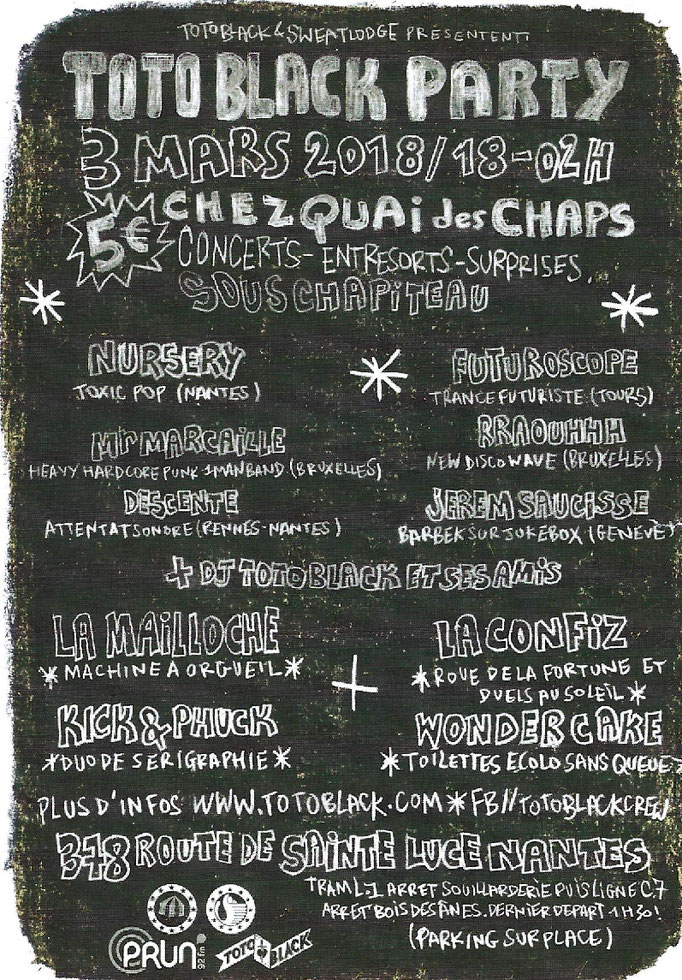 TOTOBLACK & SWEATLODGE PRESENTENT:
TOTO BLACK PARTY
3 MARS 2018/18-02H
5€
CHEZ QUAi des CHAPS
CONCERTS - ENTRESORTS - SURPRISES
SOUS CHAPiTEAU
NURSERY
TOXIC POP (NANTES)
FUTUROSCOPE
TRANCE FUTURISTE (TOURS)
Mr MARCAILLE
HEAVY HARDCORE PUNK 1 MAN BAND (BRUXELLES)
RRAOUHHH
NEW DISCO WAVE (BRUXELLES)
DESCENTE
ATTENTAT SONORE (RENNES-NANTES)
JEREM SAUCISSE
BARBEK SUR JUKEBOX (GENEVE)
+ DJ TOTO BLACK ET SES AMiS
LA MAiLLOCHE
*MACHINE A ORGUEIL*
LA CONFiZ
*ROUE DE LA FORTUNE ET
DUELS AU SOLEIL*
+
KICK & PHUCK
*DUO DE SERIGRAPHIE*
WONDER CAKE
*TOILETTES ECOLO SANS QUEUE*
PLUS D'INFOS WWW.TOTOBLACK.COM * FB//TOTOBLACKCREW
378 ROUTE DE SAiNTE LUCE NANTES
TRAM L.1 ARRET SOUILLARDERIE PUIS LIGNE C.7
ARRET BOIS DES ÂNES. DERNIER DEPART 1H30!
(PARKING SUR PLACE)
PRUN'
92 fm
TOTO BLACK